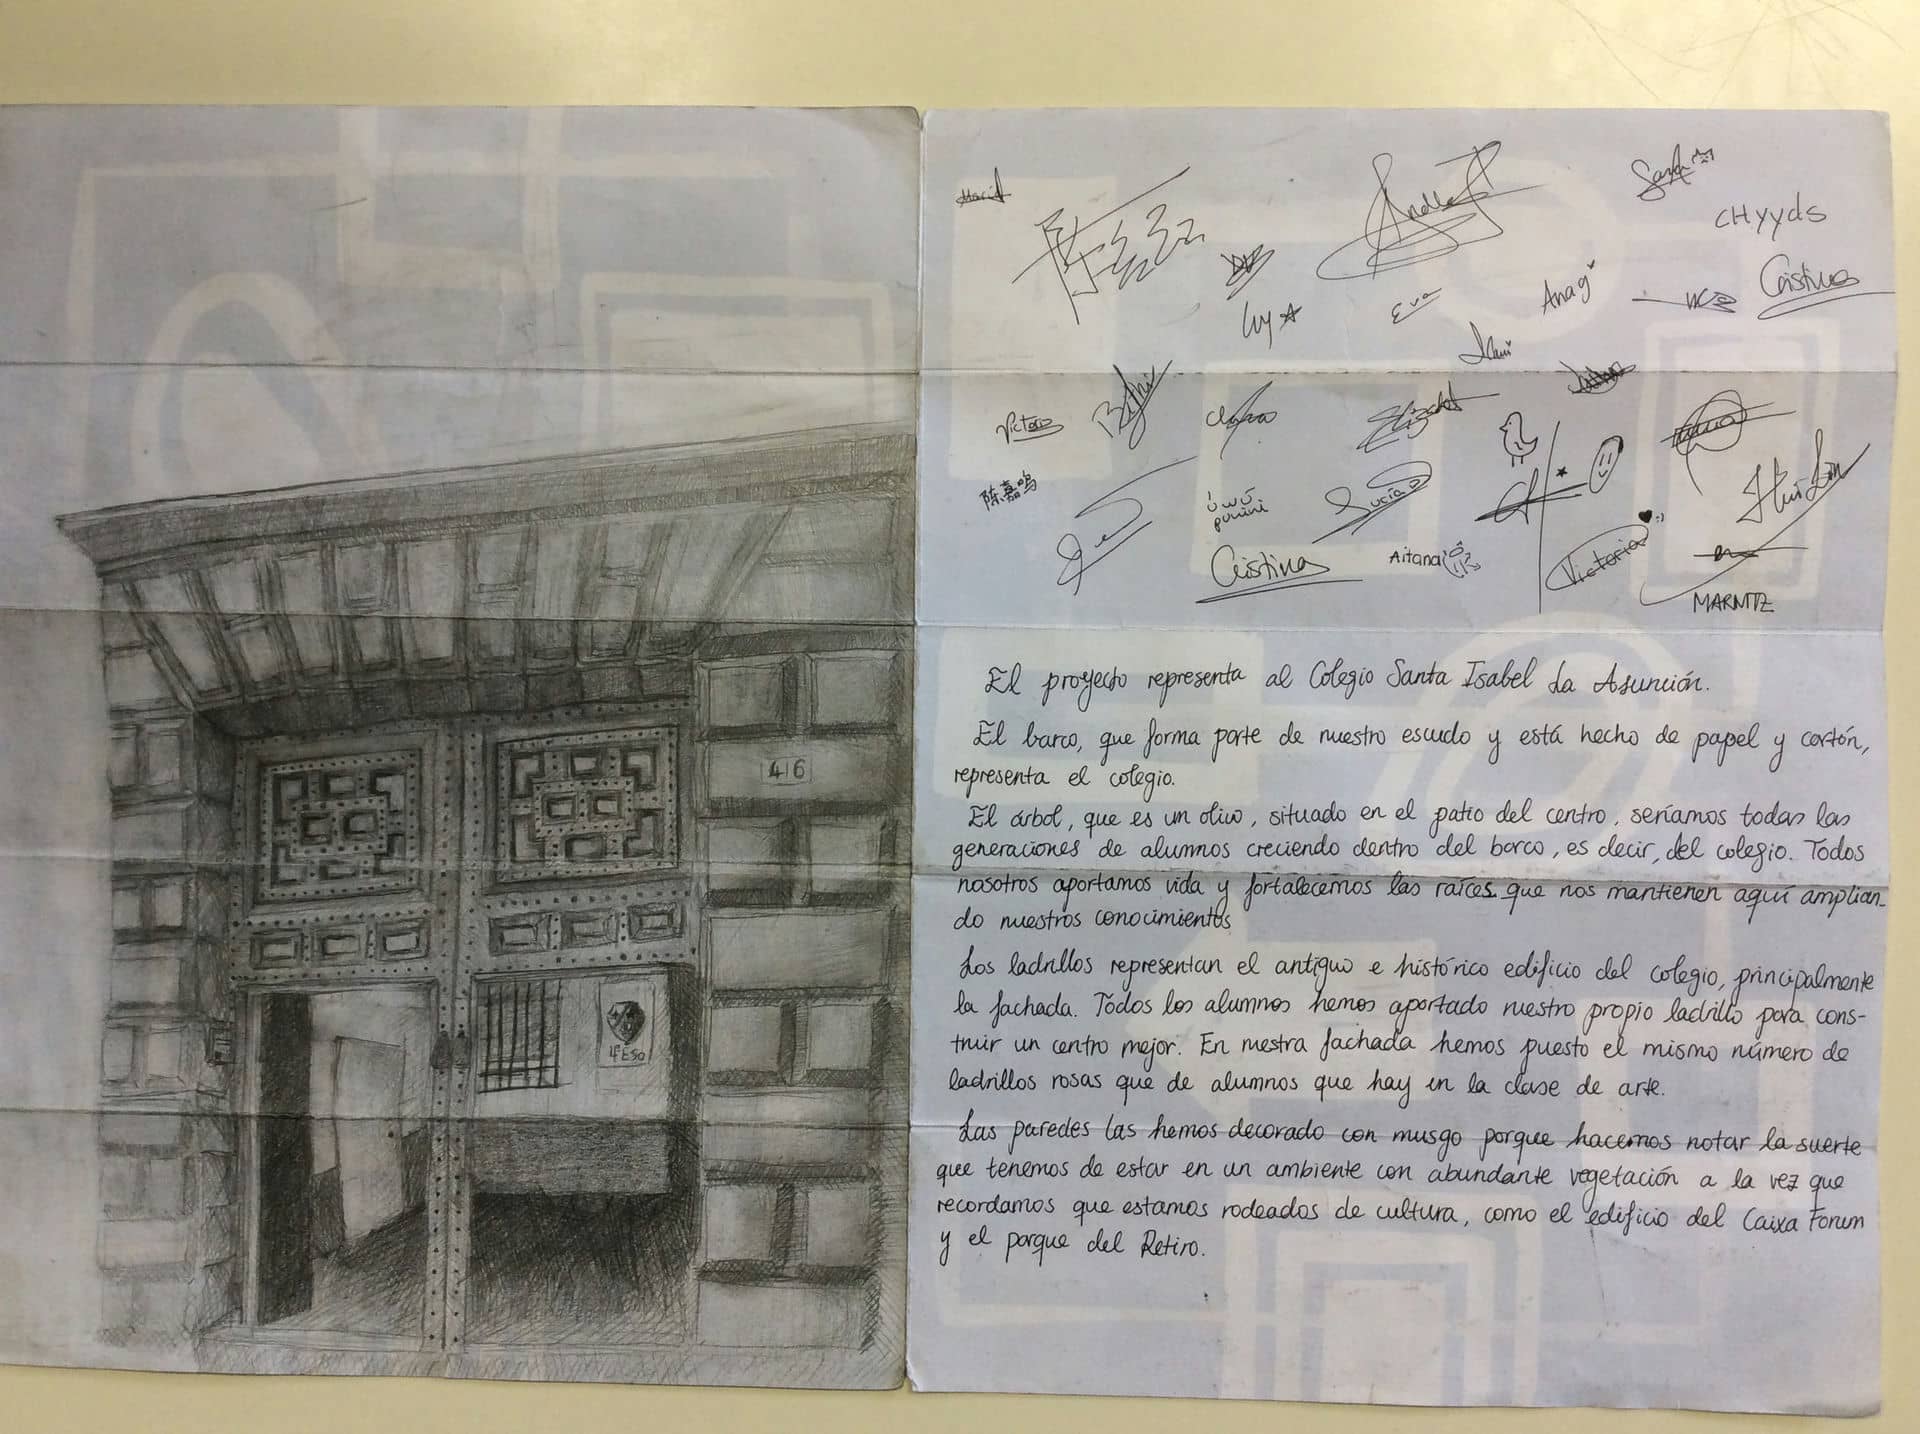 46
1ºESO
Maria
Sara
CHyyds
Cristina
Anag
Eva
Victoria
Clara
Elizabet
陈嘉鸣
úwú
Lucía
Cristina
Aitana
Victoria
:)
El proyecto representa al Colegio Santa Isabel La Asunción.
El barco, que forma parte de nuestro escudo y está hecho de papel y cartón,
representa el colegio.
El árbol, que es un olivo, situado en el patio del centro, seríamos todas las
generaciones de alumnos creciendo dentro del barco, es decir, del colegio. Todos
nosotros aportamos vida y fortalecemos las raíces que nos mantienen aquí amplian-
do nuestros conocimientos
Los ladrillos representan el antiguo e histórico edificio del colegio, principalmente
la fachada. Todos los alumnos hemos aportado nuestro propio ladrillo para cons-
truir un centro mejor. En nuestra fachada hemos puesto el mismo número de
ladrillos rosas que de alumnos que hay en la clase de arte.
Las paredes las hemos decorado con musgo porque hacemos notar la suerte
que tenemos de estar en un ambiente con abundante vegetación a la vez que
recordamos que estamos rodeados de cultura, como el edificio del Caixa Forum
y el parque del Retiro.